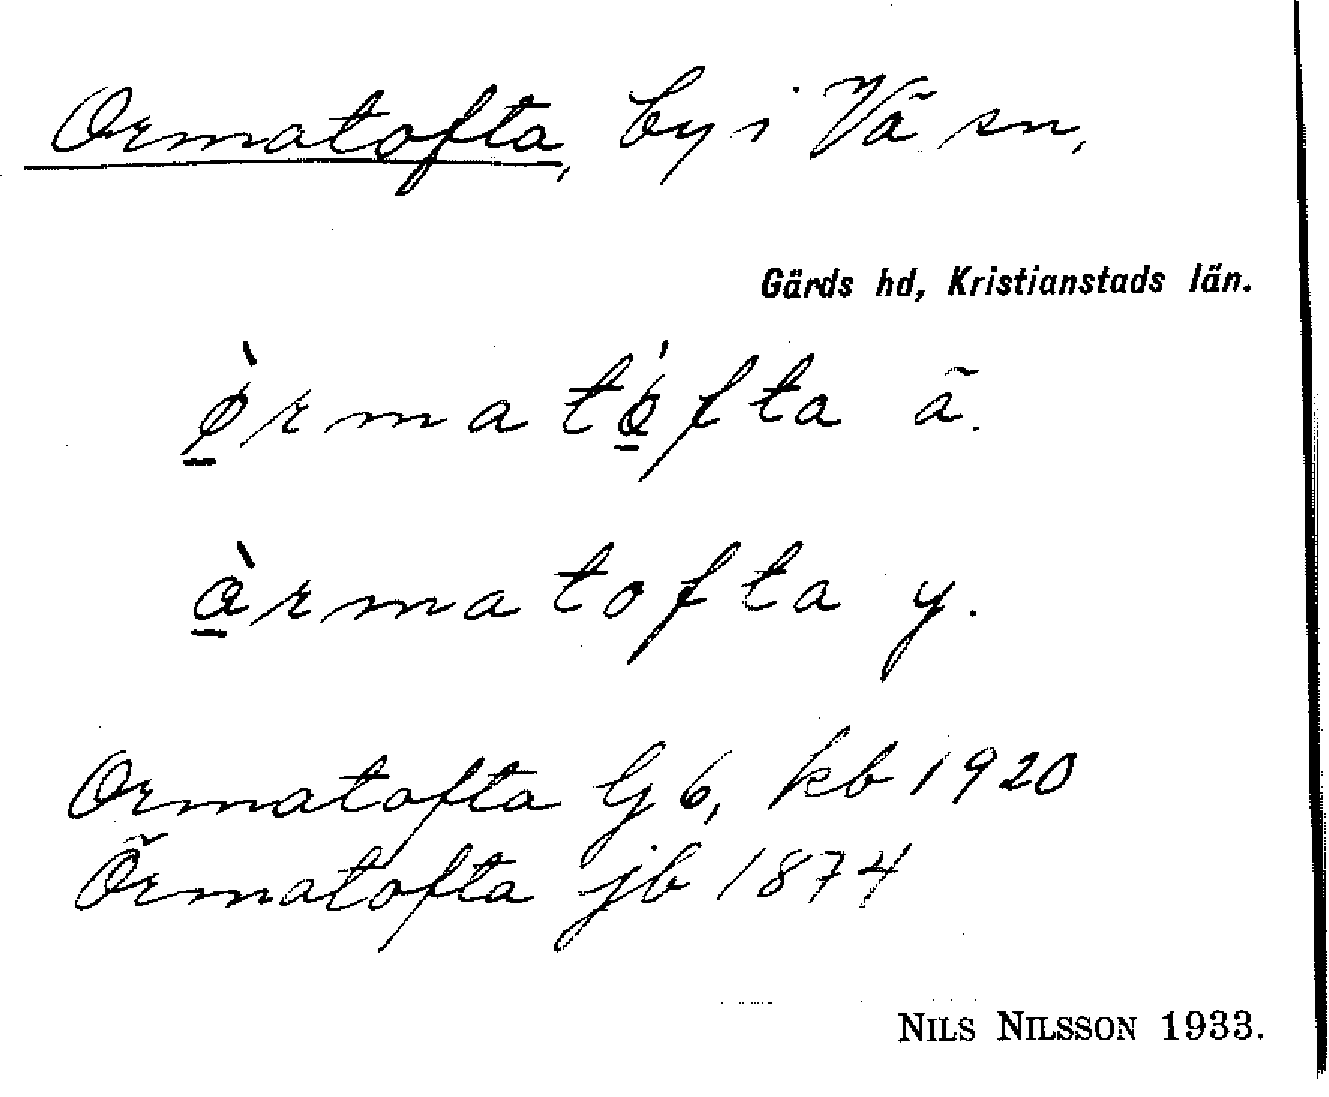 Ormatofta, by i Vä sn,
Gärds hd, Kristianstads län.
ø̲̀rmató̲fta ä.
à̲rmatofta y.
Ormatofta G 6, kb 1920
Örmatofta jb 1874
NILS NILSSON 1933.